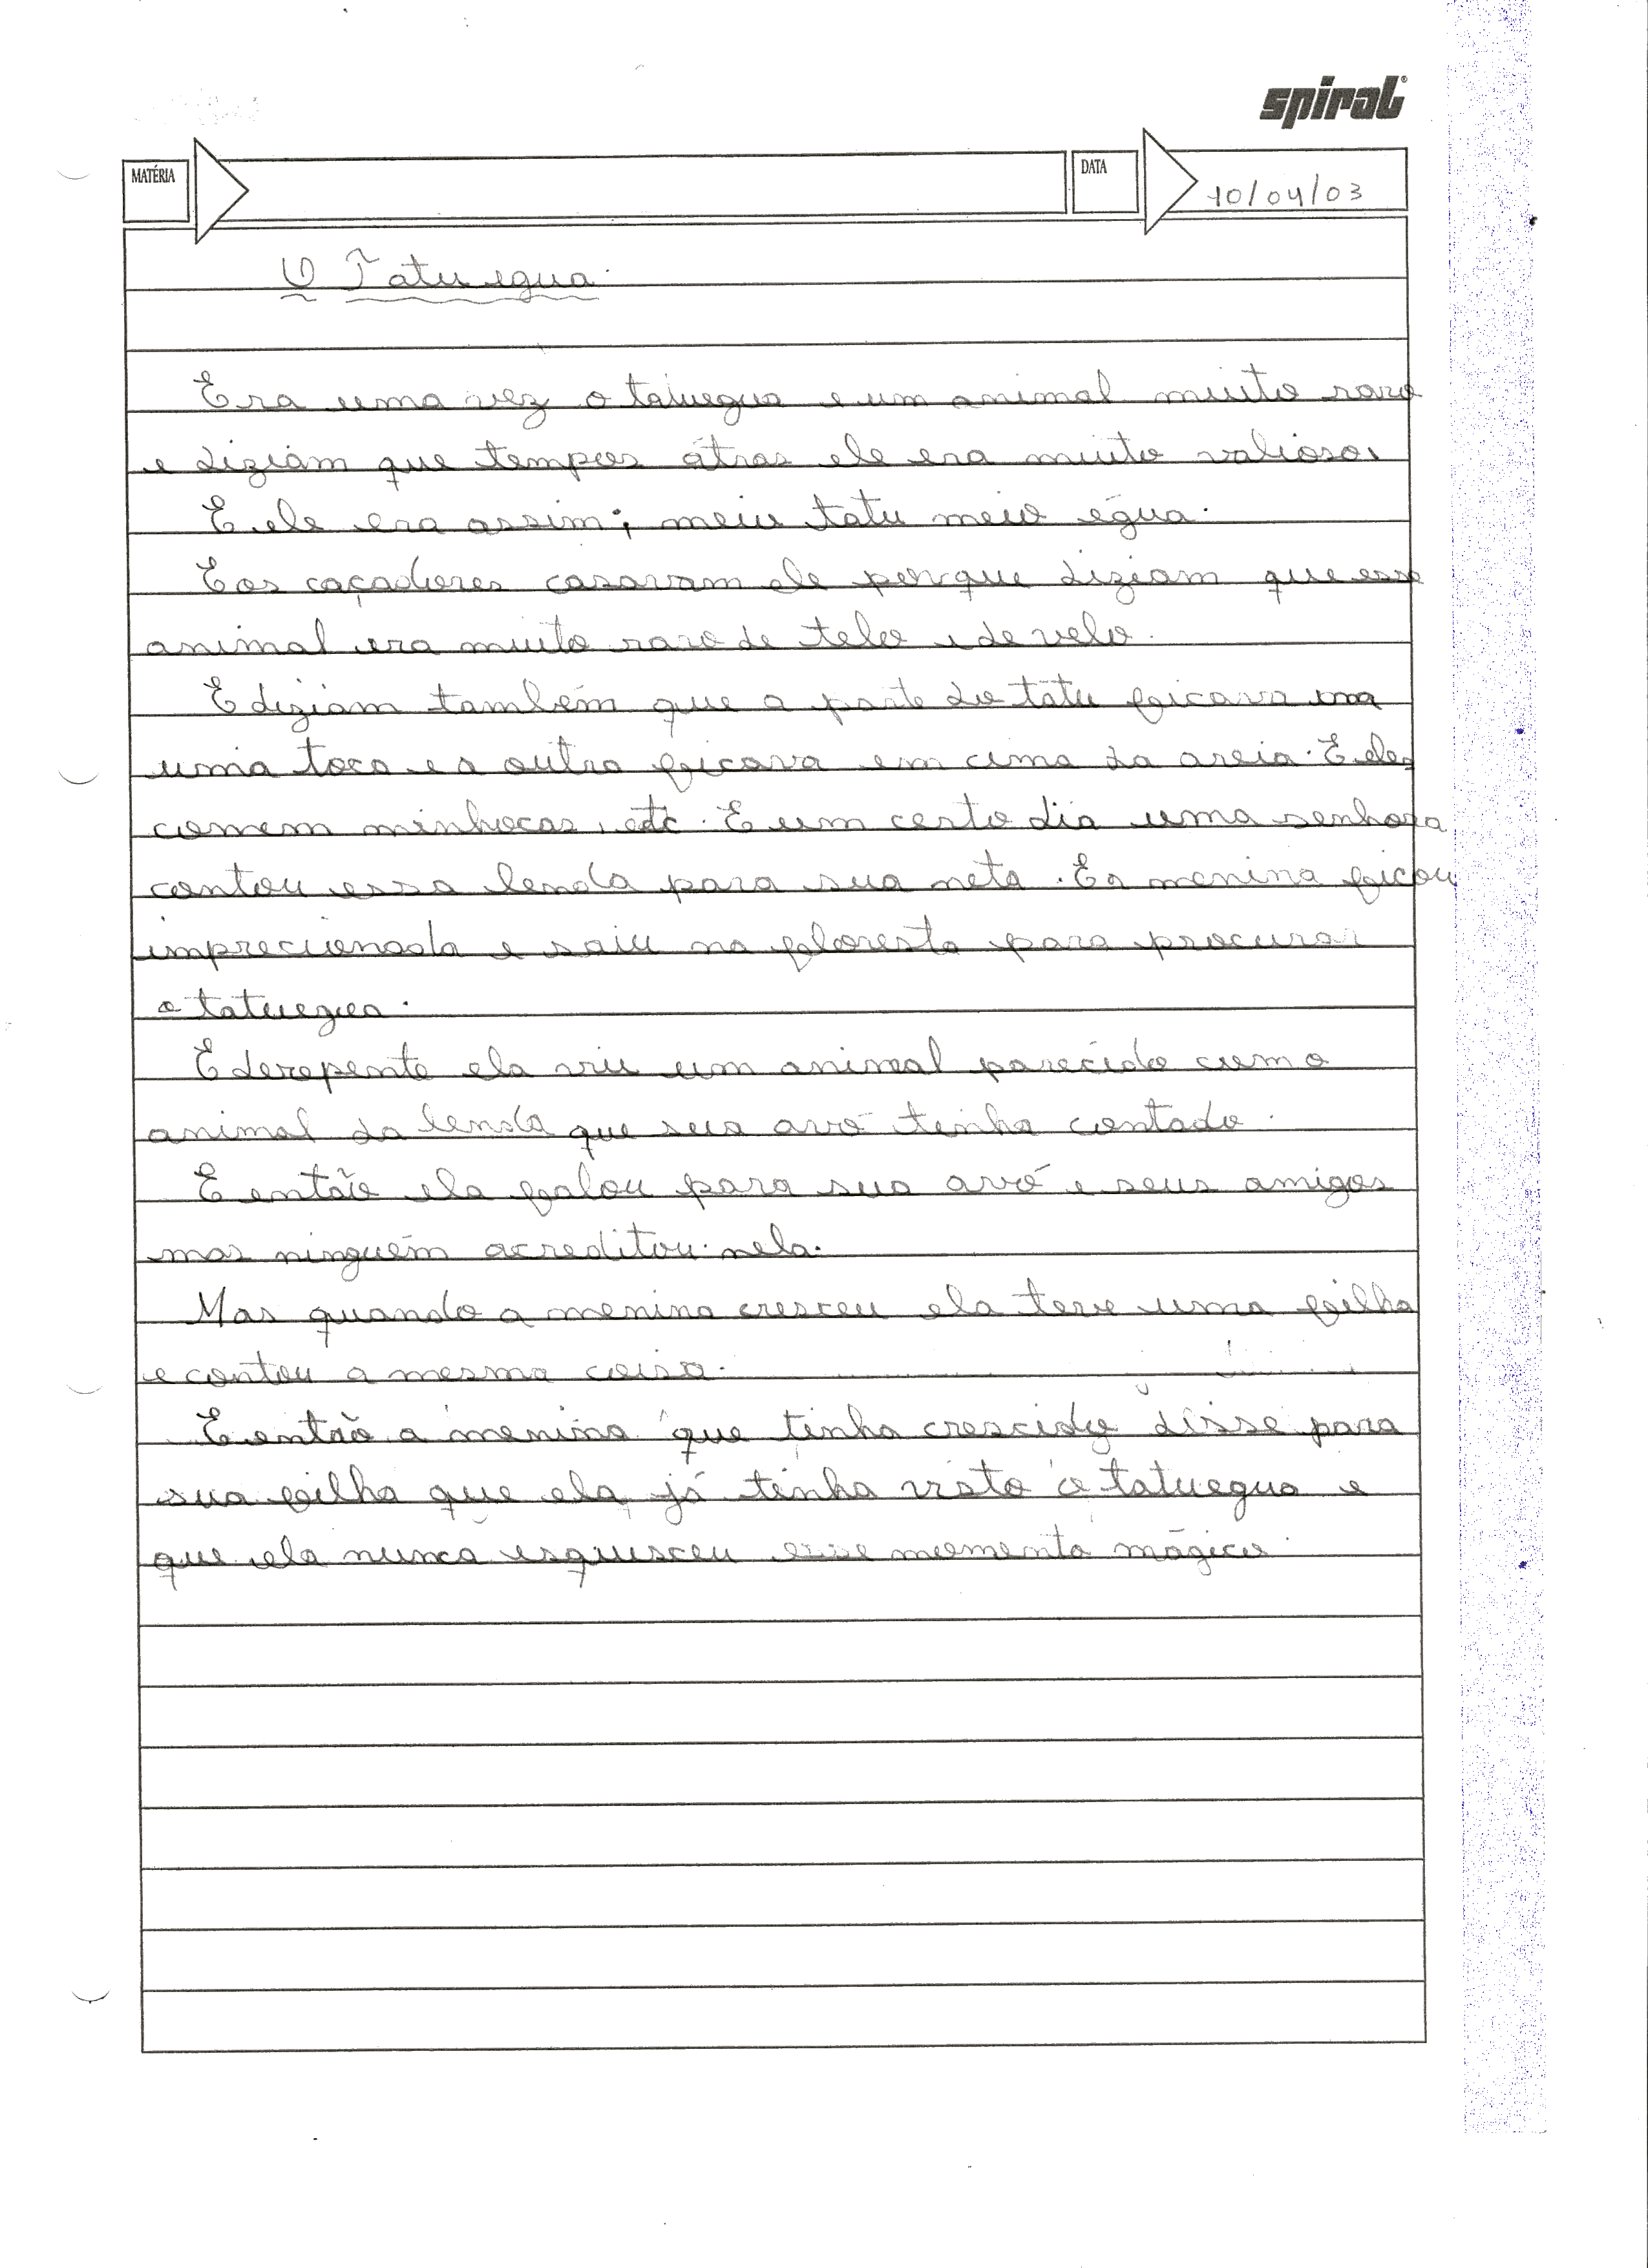 spiral®
MATÉRIA
DATA
10/04/03
O Tatu egua.
Era uma vez o tatuegua e um animal muito raro
e diziam que tempos átras ele era muito valioso.
E ele era assim; meio tatu meio égua.
E os caçadores casavam ele porque diziam que esse
animal era muito raro de telo e de velo.
E diziam também que a parte do tatu ficava na
uma toca e a outra ficava em cima da areia. E eles
comem minhocas, etc. E um certo dia uma senhora
contou essa lenda para sua neta. E a menina ficou
imprecionada e saiu na floresta para procurar
o tatuegua.
E derepente ela viu um animal parecido com o
animal da lenda que sua avó tinha contado.
E então ela falou para sua avó e seus amigos
mas ninguém acreditou nela.
Mas quando a menina cresceu ela teve uma filha
e contou a mesma coisa.
E então a menina que tinha crescido disse para
sua filha que ela já tinha visto o tatuegua e
que ela nunca esquesceu esse momento mágico.